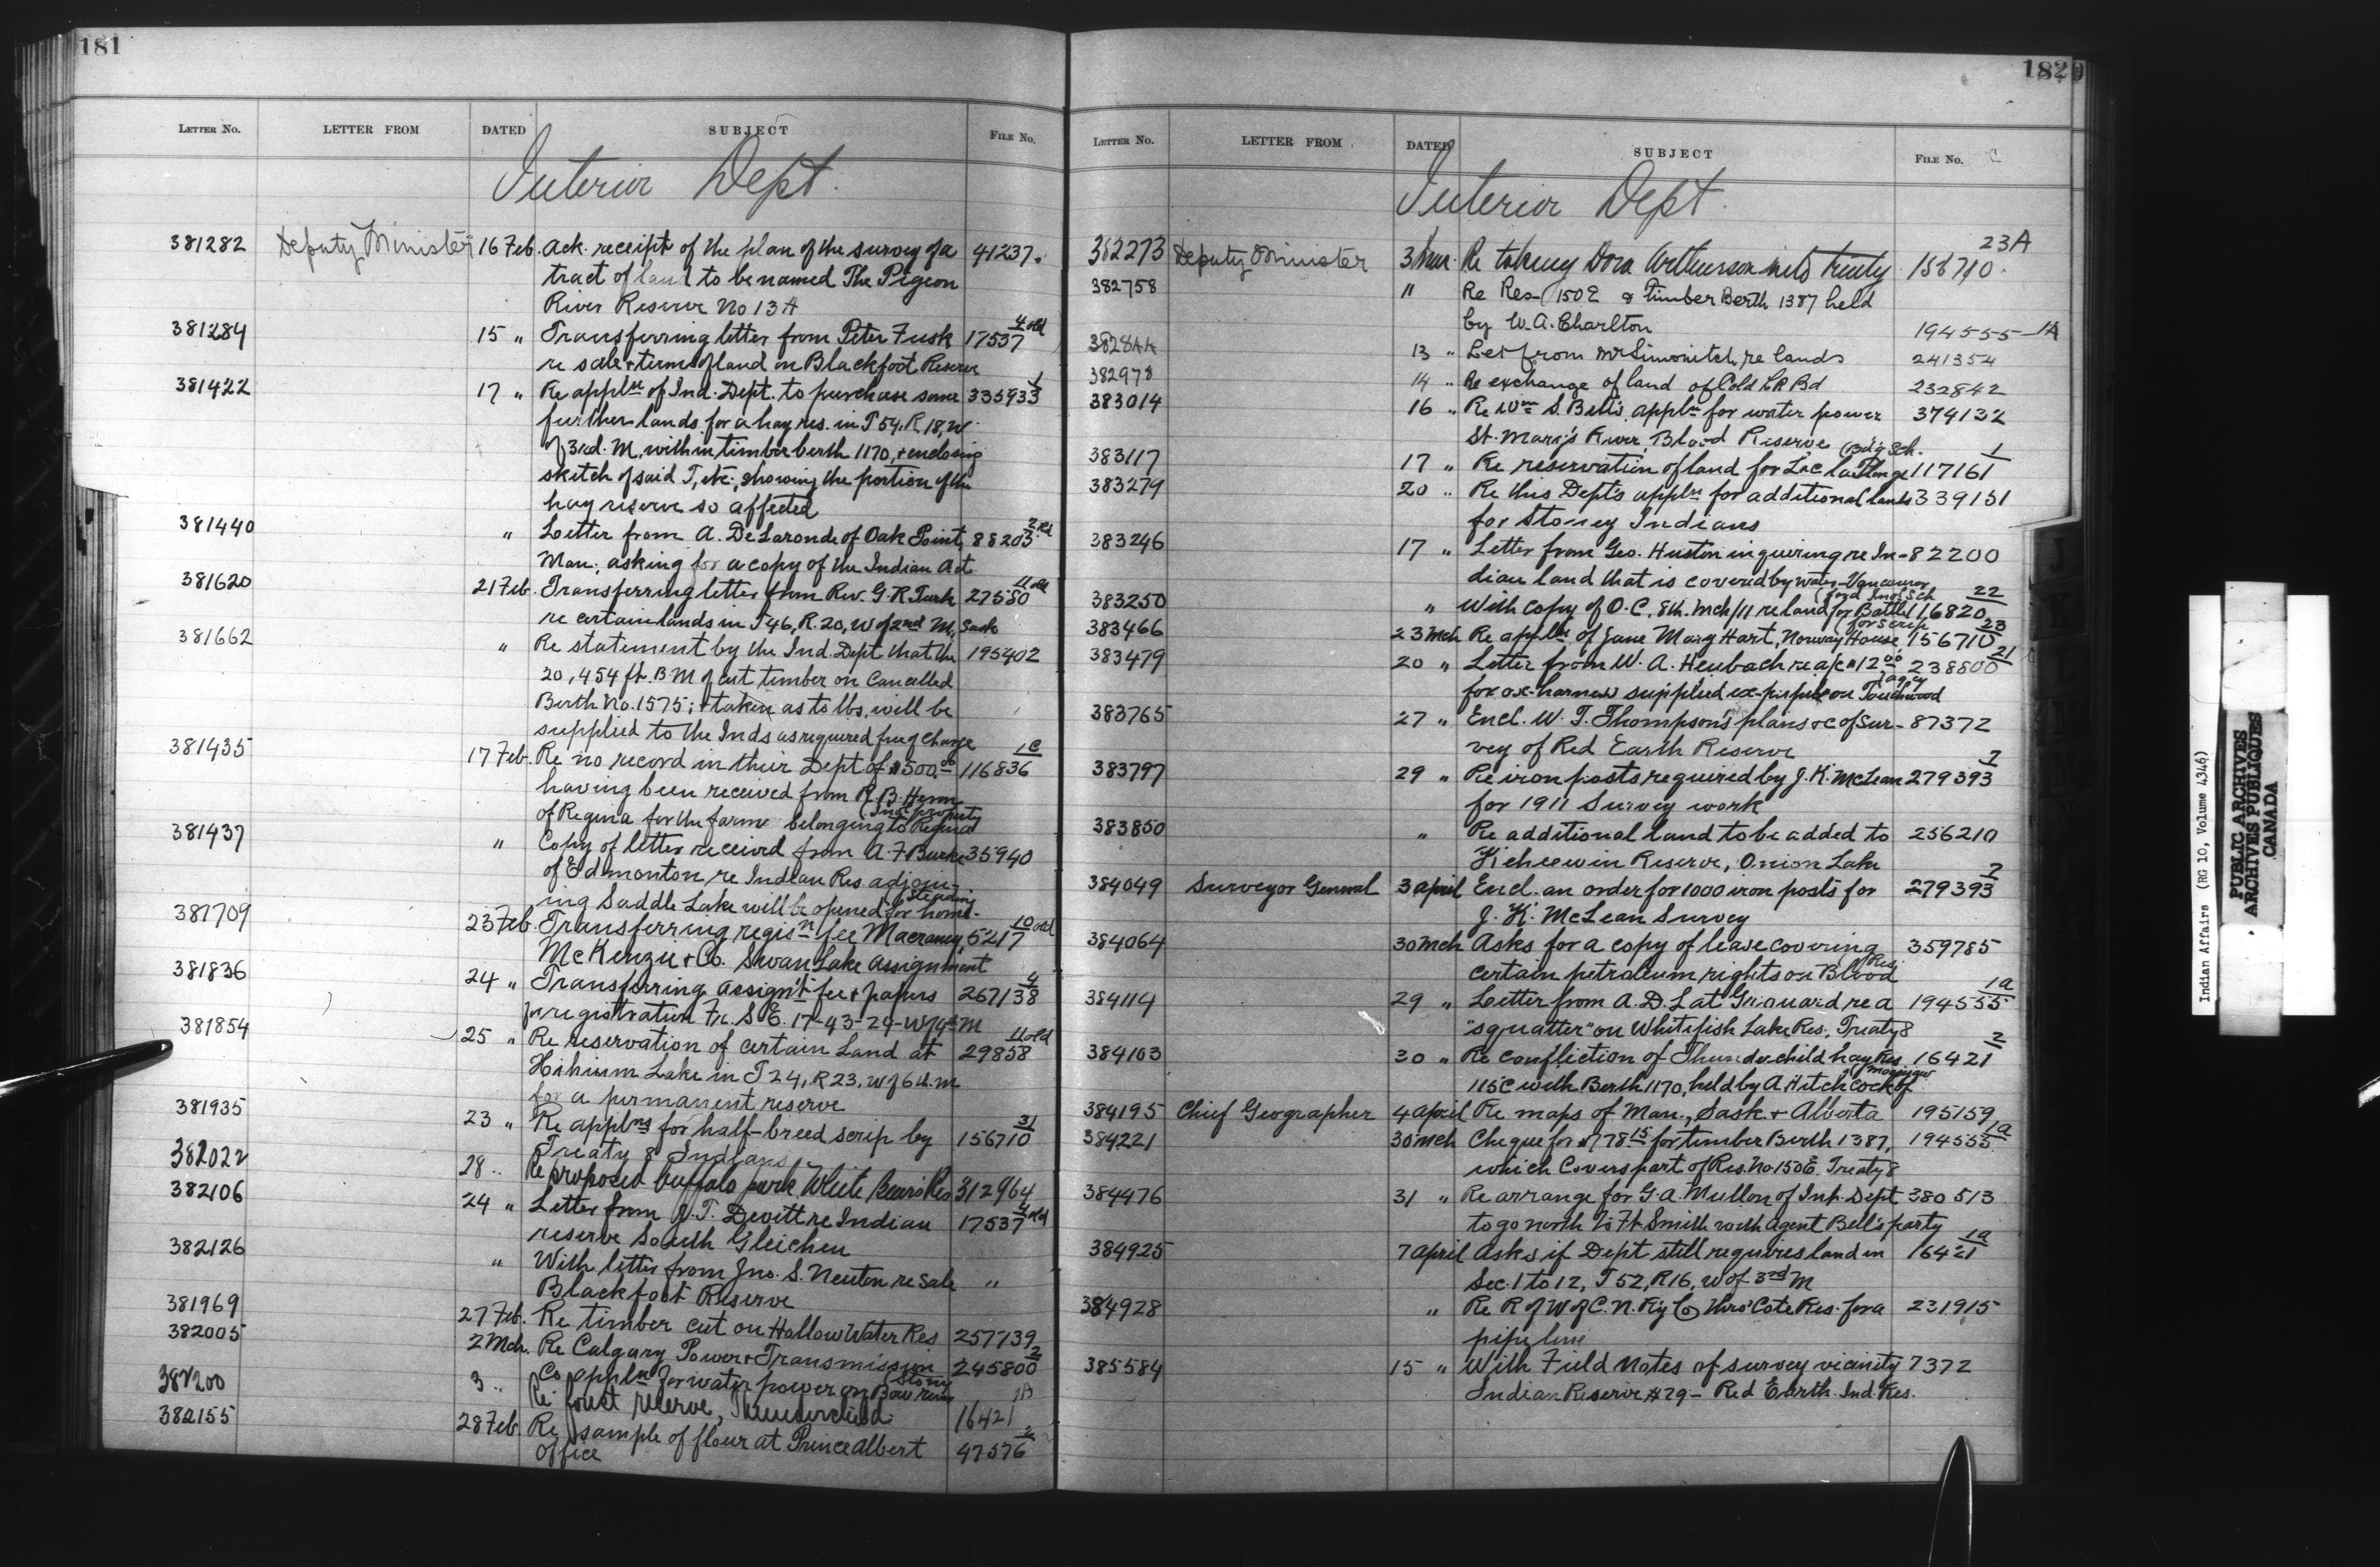 181
LETTER No. LETTER FROM DATED SUBJECT FILE No.
Interior Dept.
381282 Deputy Minister 16 Feb. Ack. receipt of the plan of the survey of a 41237.
tract of land to be named The Pigeon
River Reserve No 13A
381284 15 " Transferring letter from Peter Fusk 17537 4 old
re sale + terms of land on Blackfoot Reserve
381422 17 " Re appln of Ind. Dept. to purchase some 335933 1
further lands for a hay res. in T 54, R 18, W
of 3rd. M. within timber berth 1170, + enclosing
sketch of said T, etc; showing the portion of the
hay reserve so affected
381440 " Letter from A. DeLaronde of Oak Point, 88203 2 Rd
Man; asking for a copy of the Indian Act
381620 21 Feb. Transferring letter from Rev. G. R. Turk 27580 11 old
re certain lands in T46, R. 20, W of 2nd M, Sask
381662 " Re statement by the Ind. Dept that the 195402
20,454 ft. B.M of cut timber on Cancelled
Berth No. 1575; + taken as to lbs, will be
supplied to the Inds as required free of charge
381435 17 Feb. Re no record in their Dept of $500.00 116836 1C
having been received from R. B.
of Regina for the farm belonging to Regina (Ind. property
381437 " Copy of letter received from A. F Burke 35940
of Edmonton re Indian Res. adjoin-
ing Saddle Lake will be opened for home- (steading
381709 23 Feb. Transferring regisn fee Macraney, 5217 10 old
McKenzie + Co. Swan Lake assignment
381836 24 " Transferring assign't fee + papers 267138 4
for registration Fr. S.E. 17-43-24-W 4th M
381854 25 " Re reservation of certain land at 29858 11 old
Hihium Lake in T 24, R 23, W of 6th. m
for a permanent reserve
381935 23 " Re applns for half-breed scrip by 156710 31
Treaty 8 Indians
382022 28 .. Re proposed buffalo park White Bears Res 312964
382106 24 " Letter from J. T. Devitt re Indian 17537 4 old
reserve South Gleichen
382126 " With letter from Jno. S. Newton re sale "
Blackfoot Reserve
381969 27 Feb. Re timber cut on Hallow Water Res 257139
382005 2 Mch. Re Calgary Power + Transmission 245800 2
Co appln for water power on Bow river (Stony
382200 3 .. Re forest reserve, Thunderchild. 16421 1B
382155 28 Feb. Re sample of flour at Prince Albert 47576 2
Office
182
LETTER No. LETTER FROM DATED SUBJECT FILE No.
Interior Dept.
382273 Deputy Minister 3 Mar. Re taking Dora into treaty 156710. 23A
382758 " Re Res- 150E & Timber Berth 1387 held
by W. A. Charlton 194555 1A
382844 13 " Let from Mr Simonitch, re lands 241354
382978 14 " Re exchange of land of Cold Lk Bd 232842
383014 16 " Re Wm S. Bell's appln for water power 374132
St. Mary's River, Blood Reserve
383117 17 " Re reservation of land for Lac la Ronge (Bd'g Sch. 117161 1
383279 20 " Re this Dept's appln for additional lands 339151
for Stoney Indians
383246 17 " Letter from Geo. Huston inquiring re In- 82200
dian land that is covered by water - Vancouver
383250 " With copy of O.C. 8th. Mch/11 re land for Battle (ford Ind. Sch 116820 22
383466 23 Mch Re appln of Jane Mary Hart, Norway House, (for scrip 156710 23
383479 20 " Letter from W. A. Heubach re a/c $12.00 238800 21
for ox-harness supplied ex-pupil on Touchwood (agcy
383765 27 " Encl. W. T. Thompson's plans &c of sur- 87372
vey of Red Earth Reserve
383797 29 " Re iron posts required by J. K. McLean 279393 7
for 1911 Survey work
383850 " Re additional land to be added to 256210
Keheewin Reserve, Onion Lake
384049 Surveyor General 3 April Encl. an order for 1000 iron posts for 279393 7
J. K. McLean Survey
384064 30 Mch Asks for a copy of lease covering 359785
certain petroleum rights on Blood (Res.
384114 29 " Letter from A. D. L at Grouard re a 194555 1a
"squatter" on Whitefish Lake Res., Treaty 8
384103 30 " Re confliction of Thunderchild hay Res 16421 2
115C with Berth 1170, held by A Hitchcock of
384195 Chief Geographer 4 April Re maps of Man., Sask + Alberta 195159
384221 30 Mch Cheque for $778.15 for timber Berth 1387, 194555 1a
which Covers part of Res. No 150E, Treaty 8
384476 31 " Re arrange for G. A. Mullon of Int. Dept 380513
to go north to Ft Smith with agent Bell's party
384925 7 April Asks if Dept still requires land in 16421 1a
Sec. 1 to 12, T 52, R16, W of 3rd M
384928 " Re R of W of C. N. Ry Co thro' Cote Res. for a 231915
pipe line
385584 15 " With Field notes of survey vicinity 7372
Indian Reserve #29 - Red Earth Ind. Res.
J
K
Indian Affairs (RG 10, Volume 4346)
PUBLIC ARCHIVES
ARCHIVES PUBLIQUES
CANADA